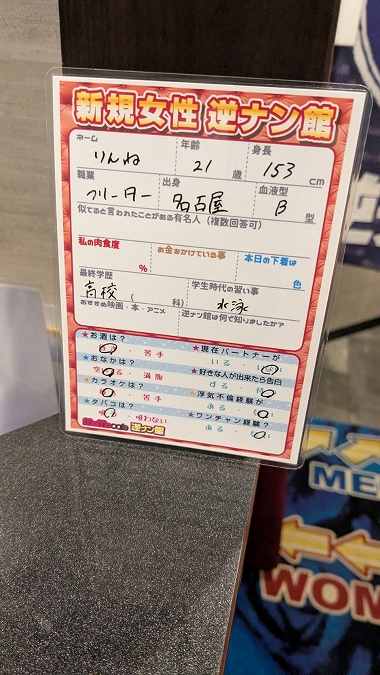 新規女性 逆ナン館
ネーム りんね 年齢 21 歳 身長 153 cm
職業 フリーター 出身 名古屋 血液型 B 型
似てると言われたことがある有名人(複数回答可)
私の肉食度 % お金をかけている事 本日の下着は 色
最終学歴 高校 ( 科) 学生時代の習い事 水泳
おすすめ映画・本・アニメ 逆ナン館は何で知りましたか?
★お酒は? ★現在パートナーが
・苦手 いる・
★おなかは? ★好きな人が出来たら告白
空・満腹 する・
★カラオケは? ★浮気不倫経験が
・苦手 ある・
★タバコは? ★ワンチャン経験?
・吸わない ある・
逆ナン館
ME
WOM